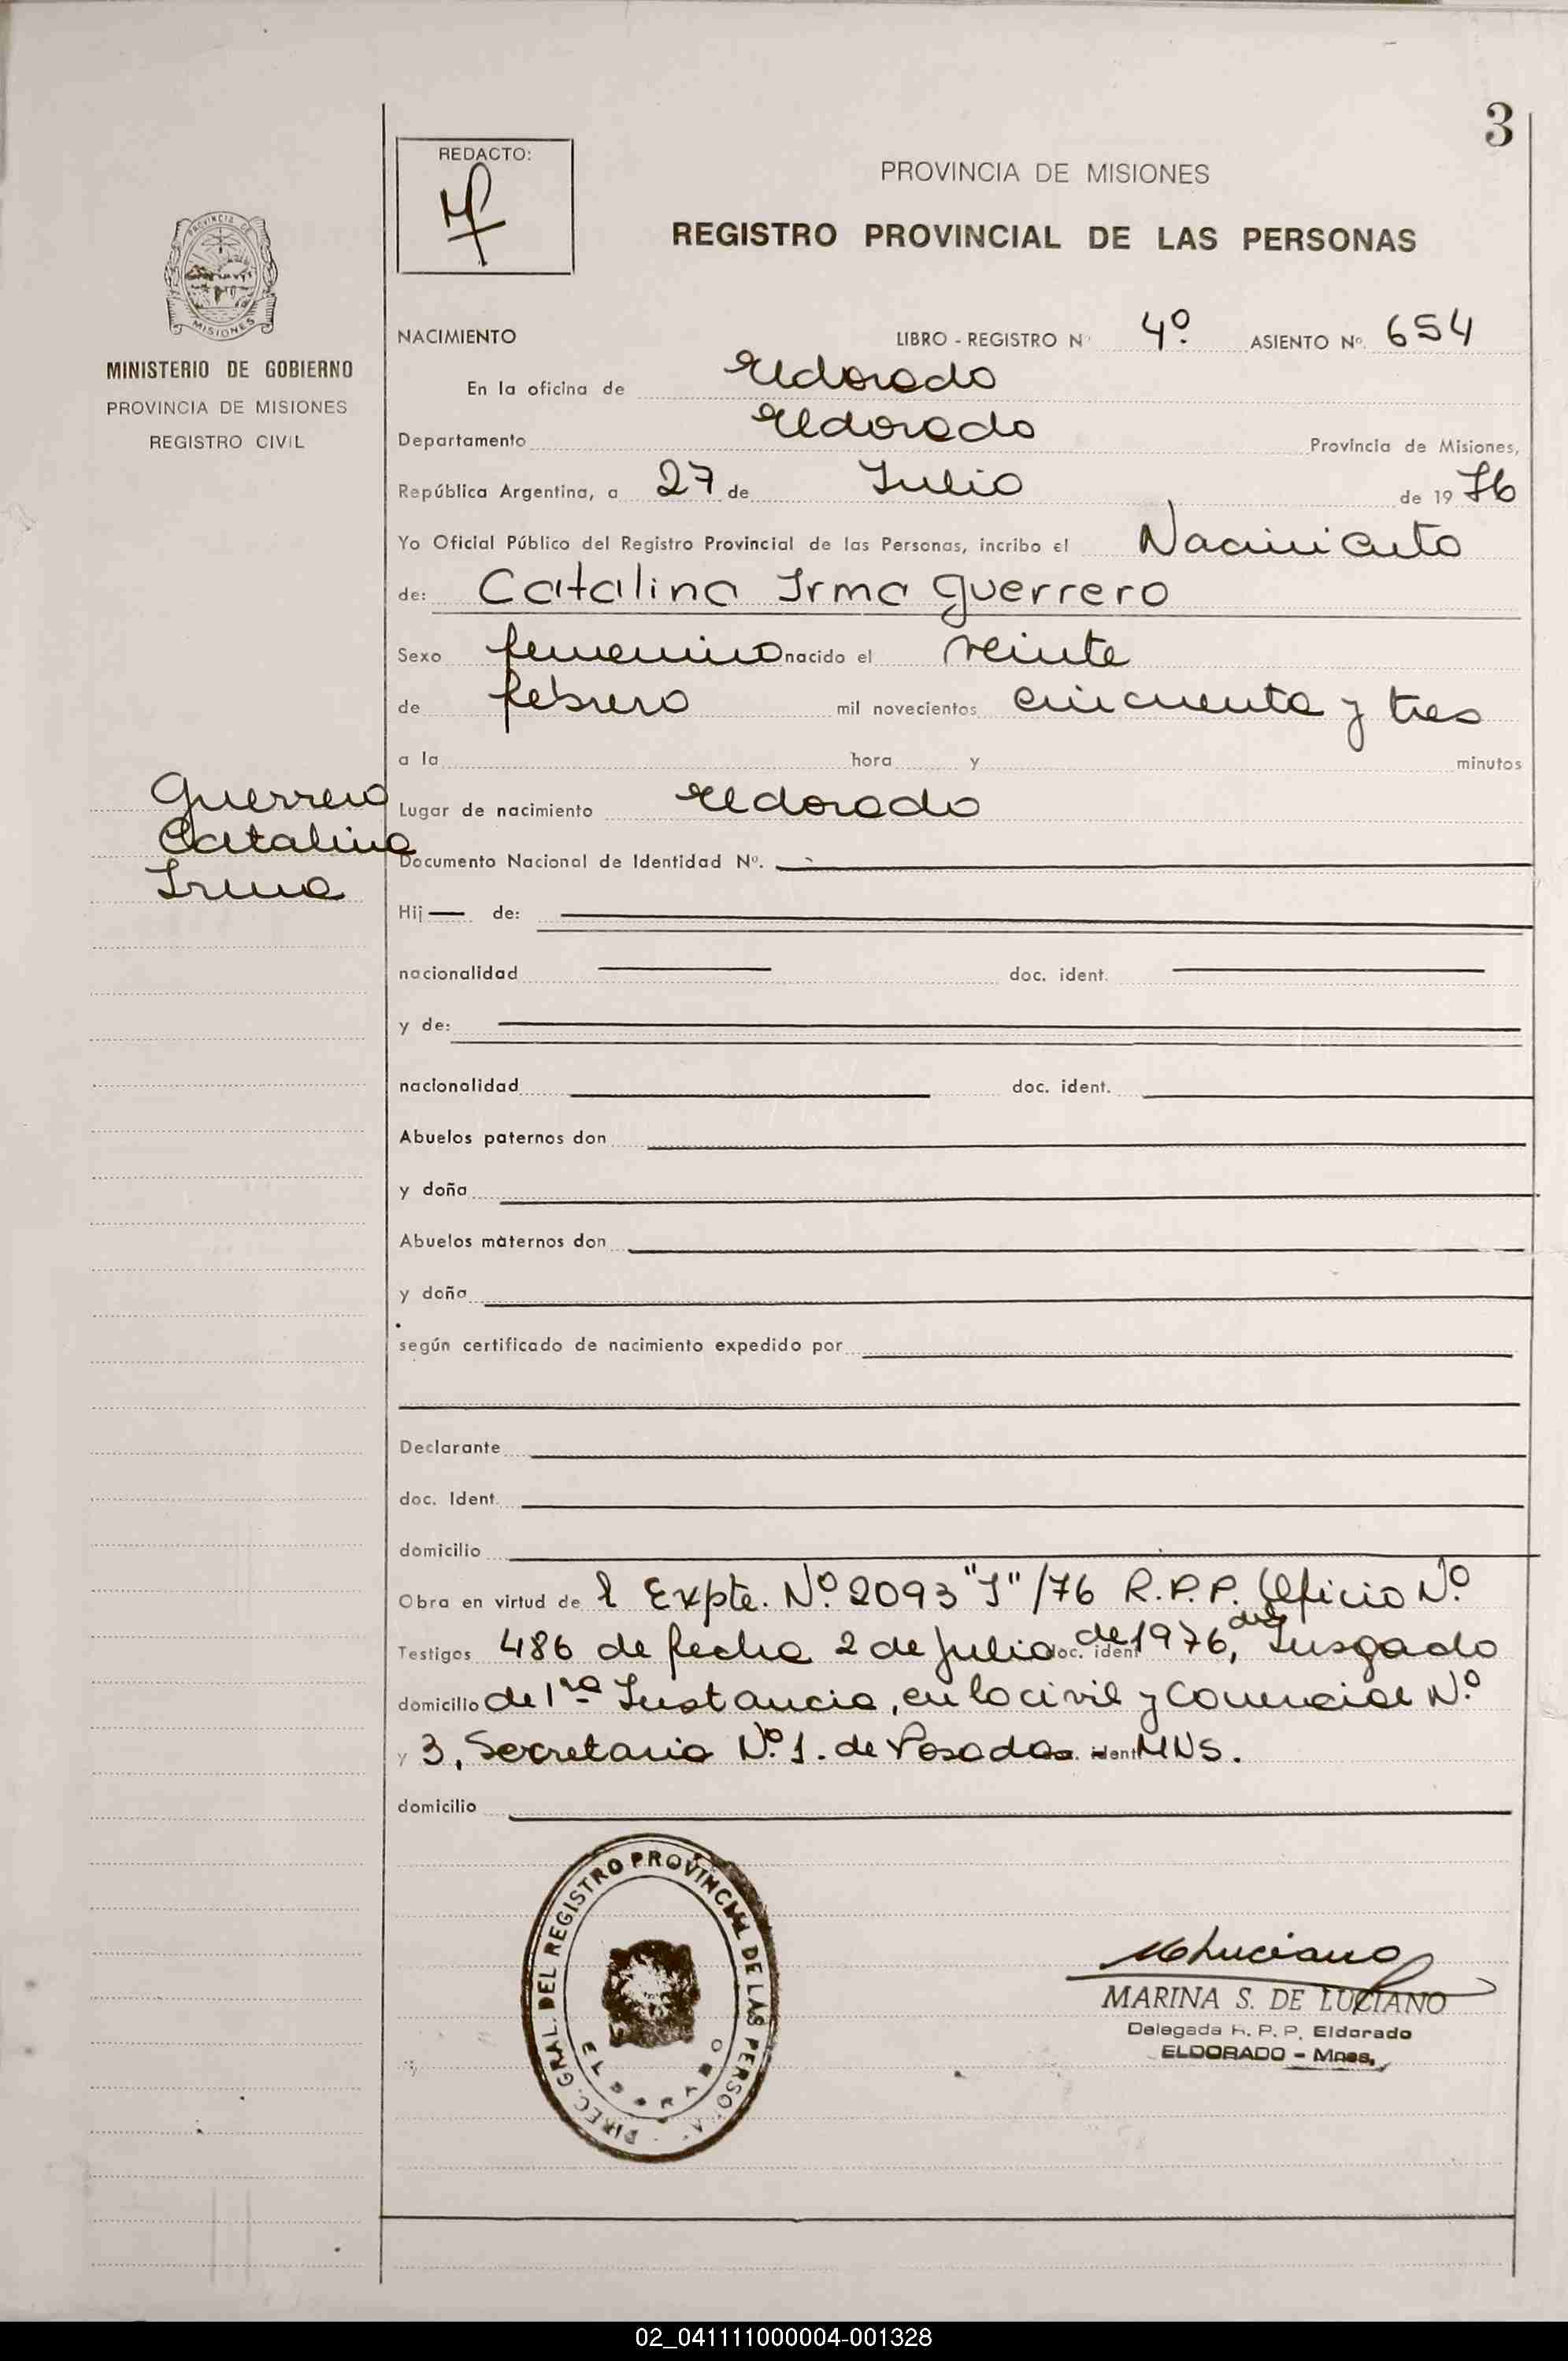 3
REDACTO:
PROVINCIA DE MISIONES
REGISTRO PROVINCIAL DE LAS PERSONAS
PROVINCIA DE
MISIONES
MINISTERIO DE GOBIERNO
PROVINCIA DE MISIONES
REGISTRO CIVIL
NACIMIENTO LIBRO - REGISTRO Nº 4º ASIENTO Nº 654
En la oficina de Eldorado
Departamento Eldorado Provincia de Misiones,
República Argentina, a 27 de Julio de 1976
Yo Oficial Público del Registro Provincial de las Personas, incribo el Nacimiento
de: Catalina Irma Guerrero
Sexo femenino nacido el veinte
de febrero mil novecientos cincuenta y tres
a la hora y minutos
Guerrero
Catalina
Irma
Lugar de nacimiento Eldorado
Documento Nacional de Identidad Nº.
Hij— de:
nacionalidad doc. ident.
y de:
nacionalidad doc. ident.
Abuelos paternos don
y doña
Abuelos maternos don
y doña
según certificado de nacimiento expedido por
Declarante
doc. Ident.
domicilio
Obra en virtud de l Expte. Nº 2093 "J"/76 R.P.P. Oficio Nº
Testigos 486 de fecha 2 de julio doc. ident de 1976, del Jusgado
domicilio de 1ra Instancia, en lo civil y Comercial Nº
y 3, Secretaria Nº 1. de Posadas ident MNS.
domicilio
DIREC. GRAL. DEL REGISTRO PROVINCIAL DE LAS PERSONAS
ELDORADO
MLuciano
MARINA S. DE LUCIANO
Delegada R. P. P. Eldorado
ELDORADO - Mnes.
02_041111000004-001328